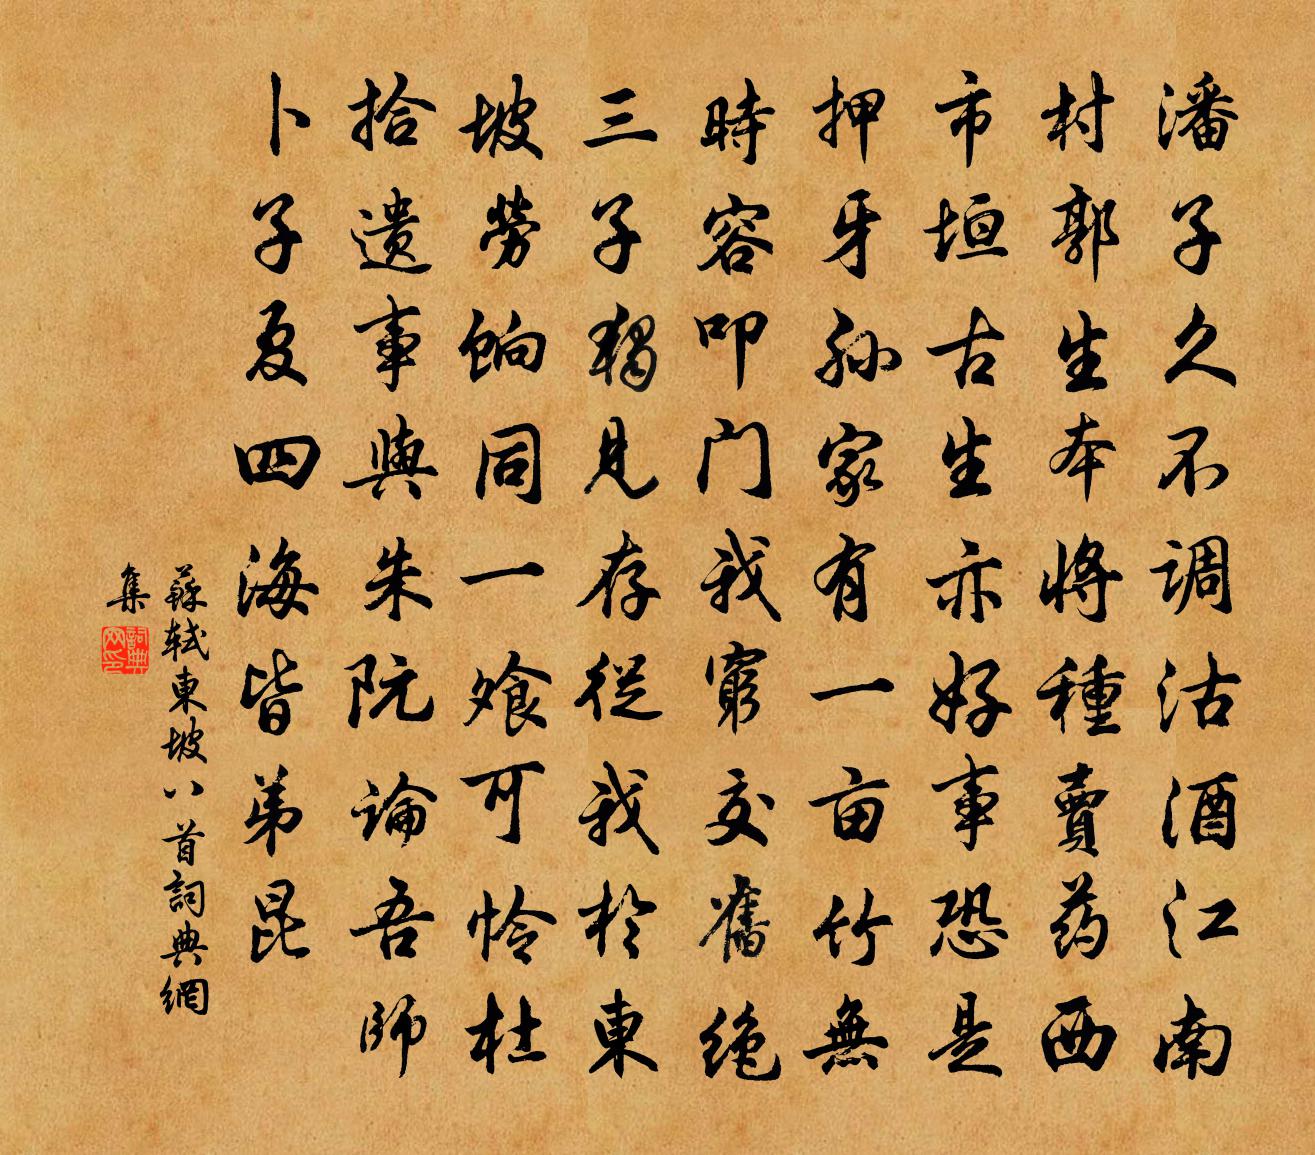 潘子久不調沽酒江南
村郭生本將種賣药西
市垣古生亦好事恐是
押牙孫家有一亩竹無
時容叩门我窮交舊绝
三子獨見存從我於東
坡勞餉同一飧可怜杜
拾遗事與朱阮論吾師
卜子夏四海皆弟昆
蘇軾東坡八首詞典網
集
詞典网印